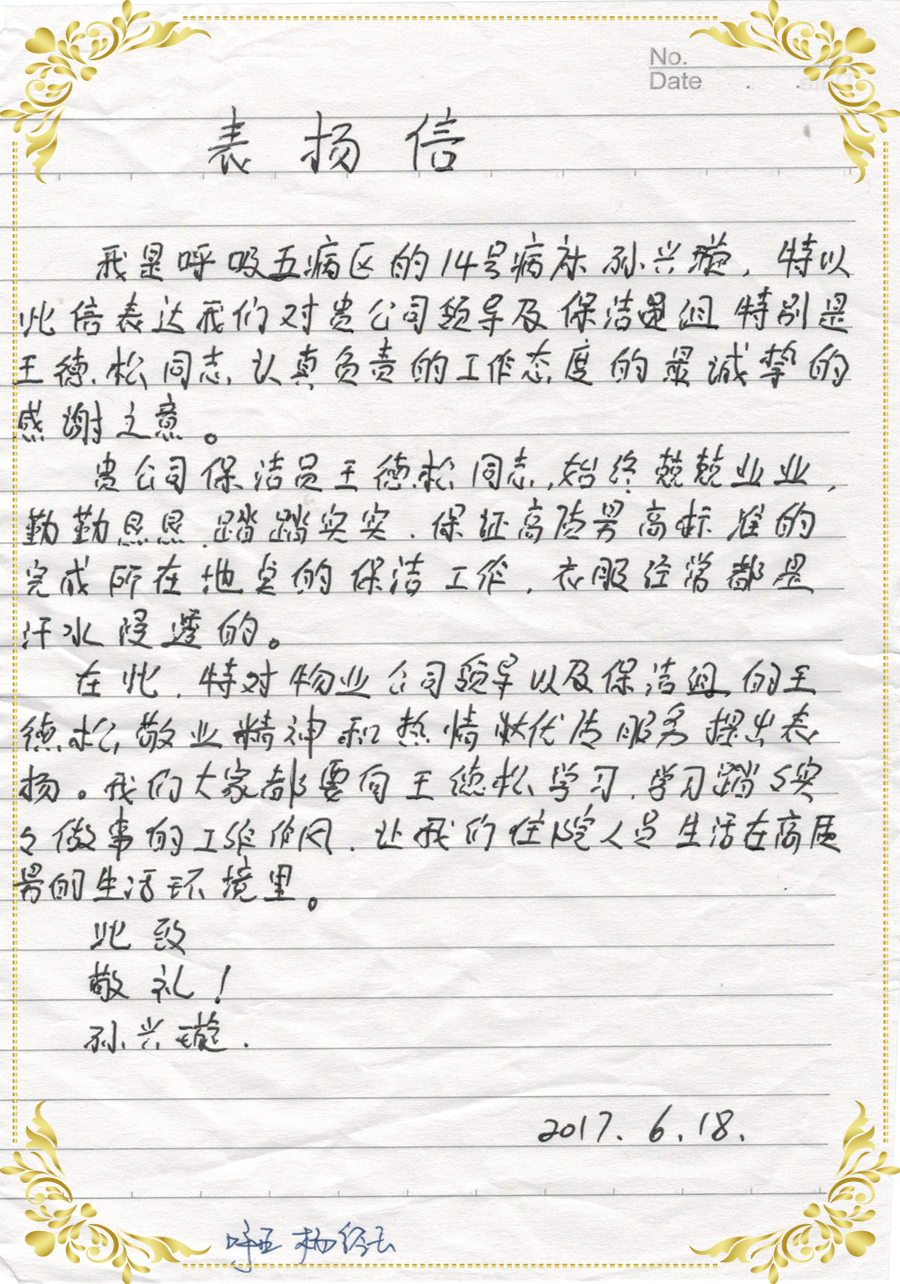 No.
Date
表扬信
我是呼吸五病区的14号病床孙兴璇，特以
此信表达我们对贵公司领导及保洁组特别是
王德松同志认真负责的工作态度的最诚挚的
感谢之意。
贵公司保洁员王德松同志，始终兢兢业业，
勤勤恳恳，踏踏实实，保证高质量高标准的
完成所在地点的保洁工作，衣服经常都是
汗水浸透的。
在此，特对物业公司领导以及保洁组的王
德松敬业精神和热情优质服务提出表
扬。我们大家都要向王德松学习，学习踏々实
々做事的工作作风，让我们住院人员生活在高质
量的生活环境里。
此致
敬礼！
孙兴璇.
2017.6.18.
呼五 杨